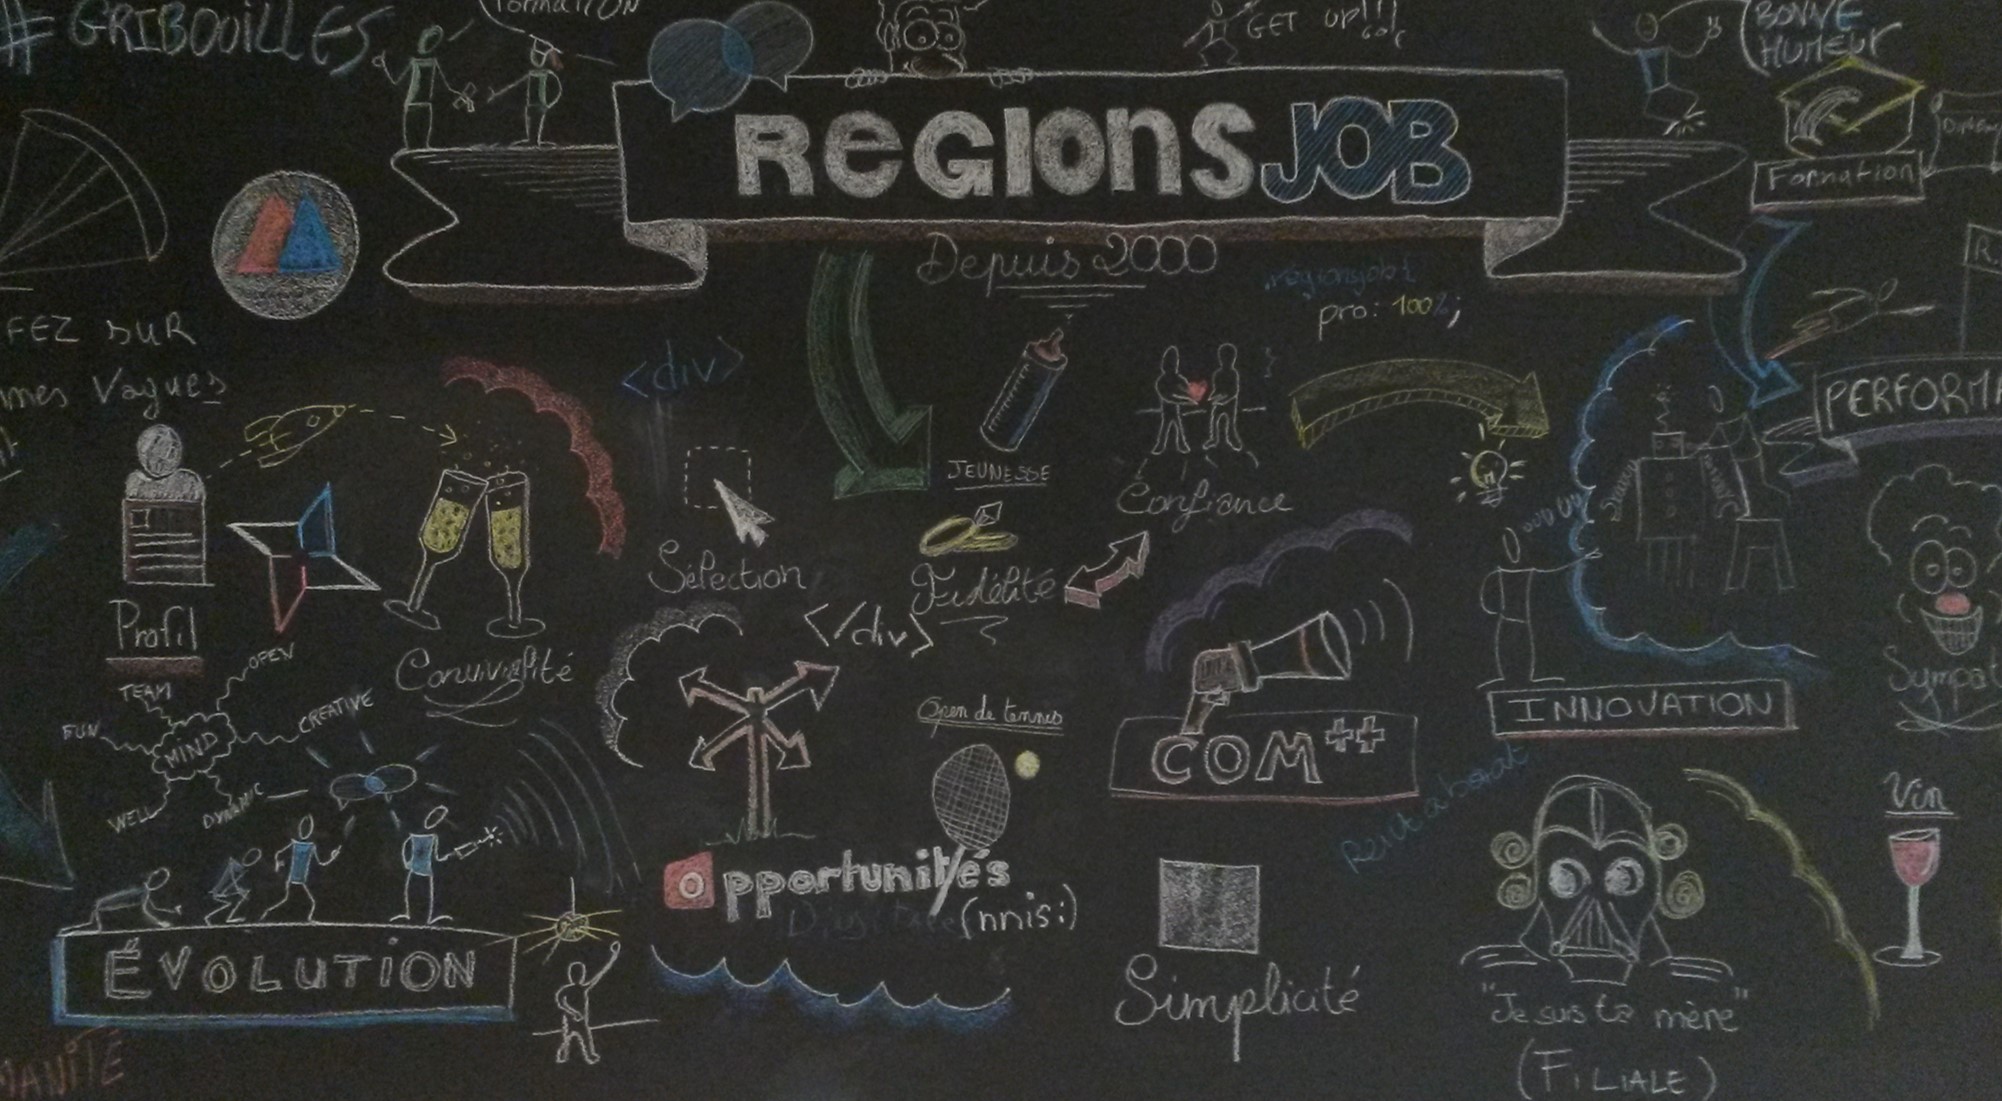 #GRIBOUILLES
formation
GET UP!!!
BONNE
HUMEUR
REGIONSJOB
Formation
Depuis 2000
régionsjob {
pro: 100%;
}
FEZ SUR
mes Vagues
<div>
JEUNESSE
Confiance
PERFORMA
Profil
Convivialité
Sélection
Fidélité
</div>
OPEN
TEAM
FUN
MIND
CREATIVE
WELL
DYNAMIC
Open de tennis
COM++
INNOVATION
Sympat
Vin
opportunités
(nnis:)
ÉVOLUTION
Simplicité
"Je suis ta mère"
(FILIALE)
MANITÉ